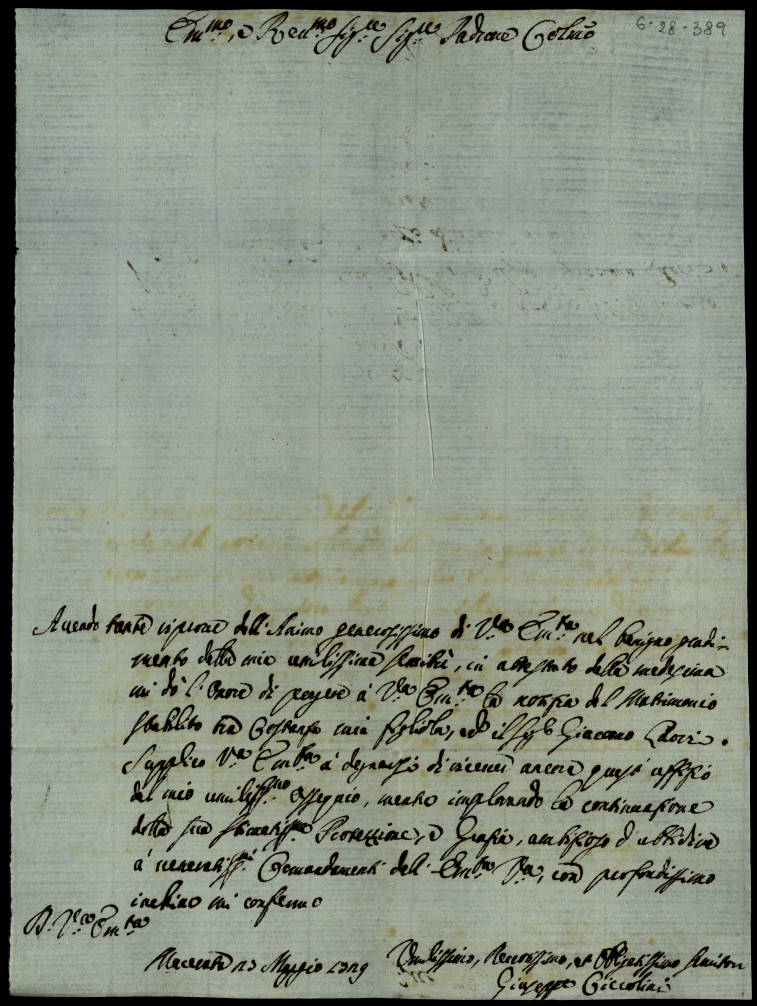 6-28-389
Em.mo, e Reu.mo Sig.re Sig.re Padrone Colmo
Auendo tante riproue dell'Animo generosissimo di V.ra Em.za nel benigno gradi-
mento della mia umilissima seruitù, in attestato della medesima
mi dò l'Onore di porgere à V.ra Em.za la notizia del Matrimonio
stabilito trà Costanza mia figliola, ed il Sig.r Giacomo
Supplico V.ra Em.za à degnarsi di riceuere ancora quest'uffizio
del mio umiliss.mo ossequio, mentre implorando la continuazione
della sua stimatiss.ma Protezzione, e Grazia, ambizioso d'ubbidire
a' veneratiss.mi Comandamenti dell'Em.za V.ra, con profondissimo
inchino mi confermo
D. V.ra Em.za
Macerata 23 Maggio 1729
Umilissimo, Deuotissimo, et Obligatissimo Seruitore
Giuseppe Ciccolini